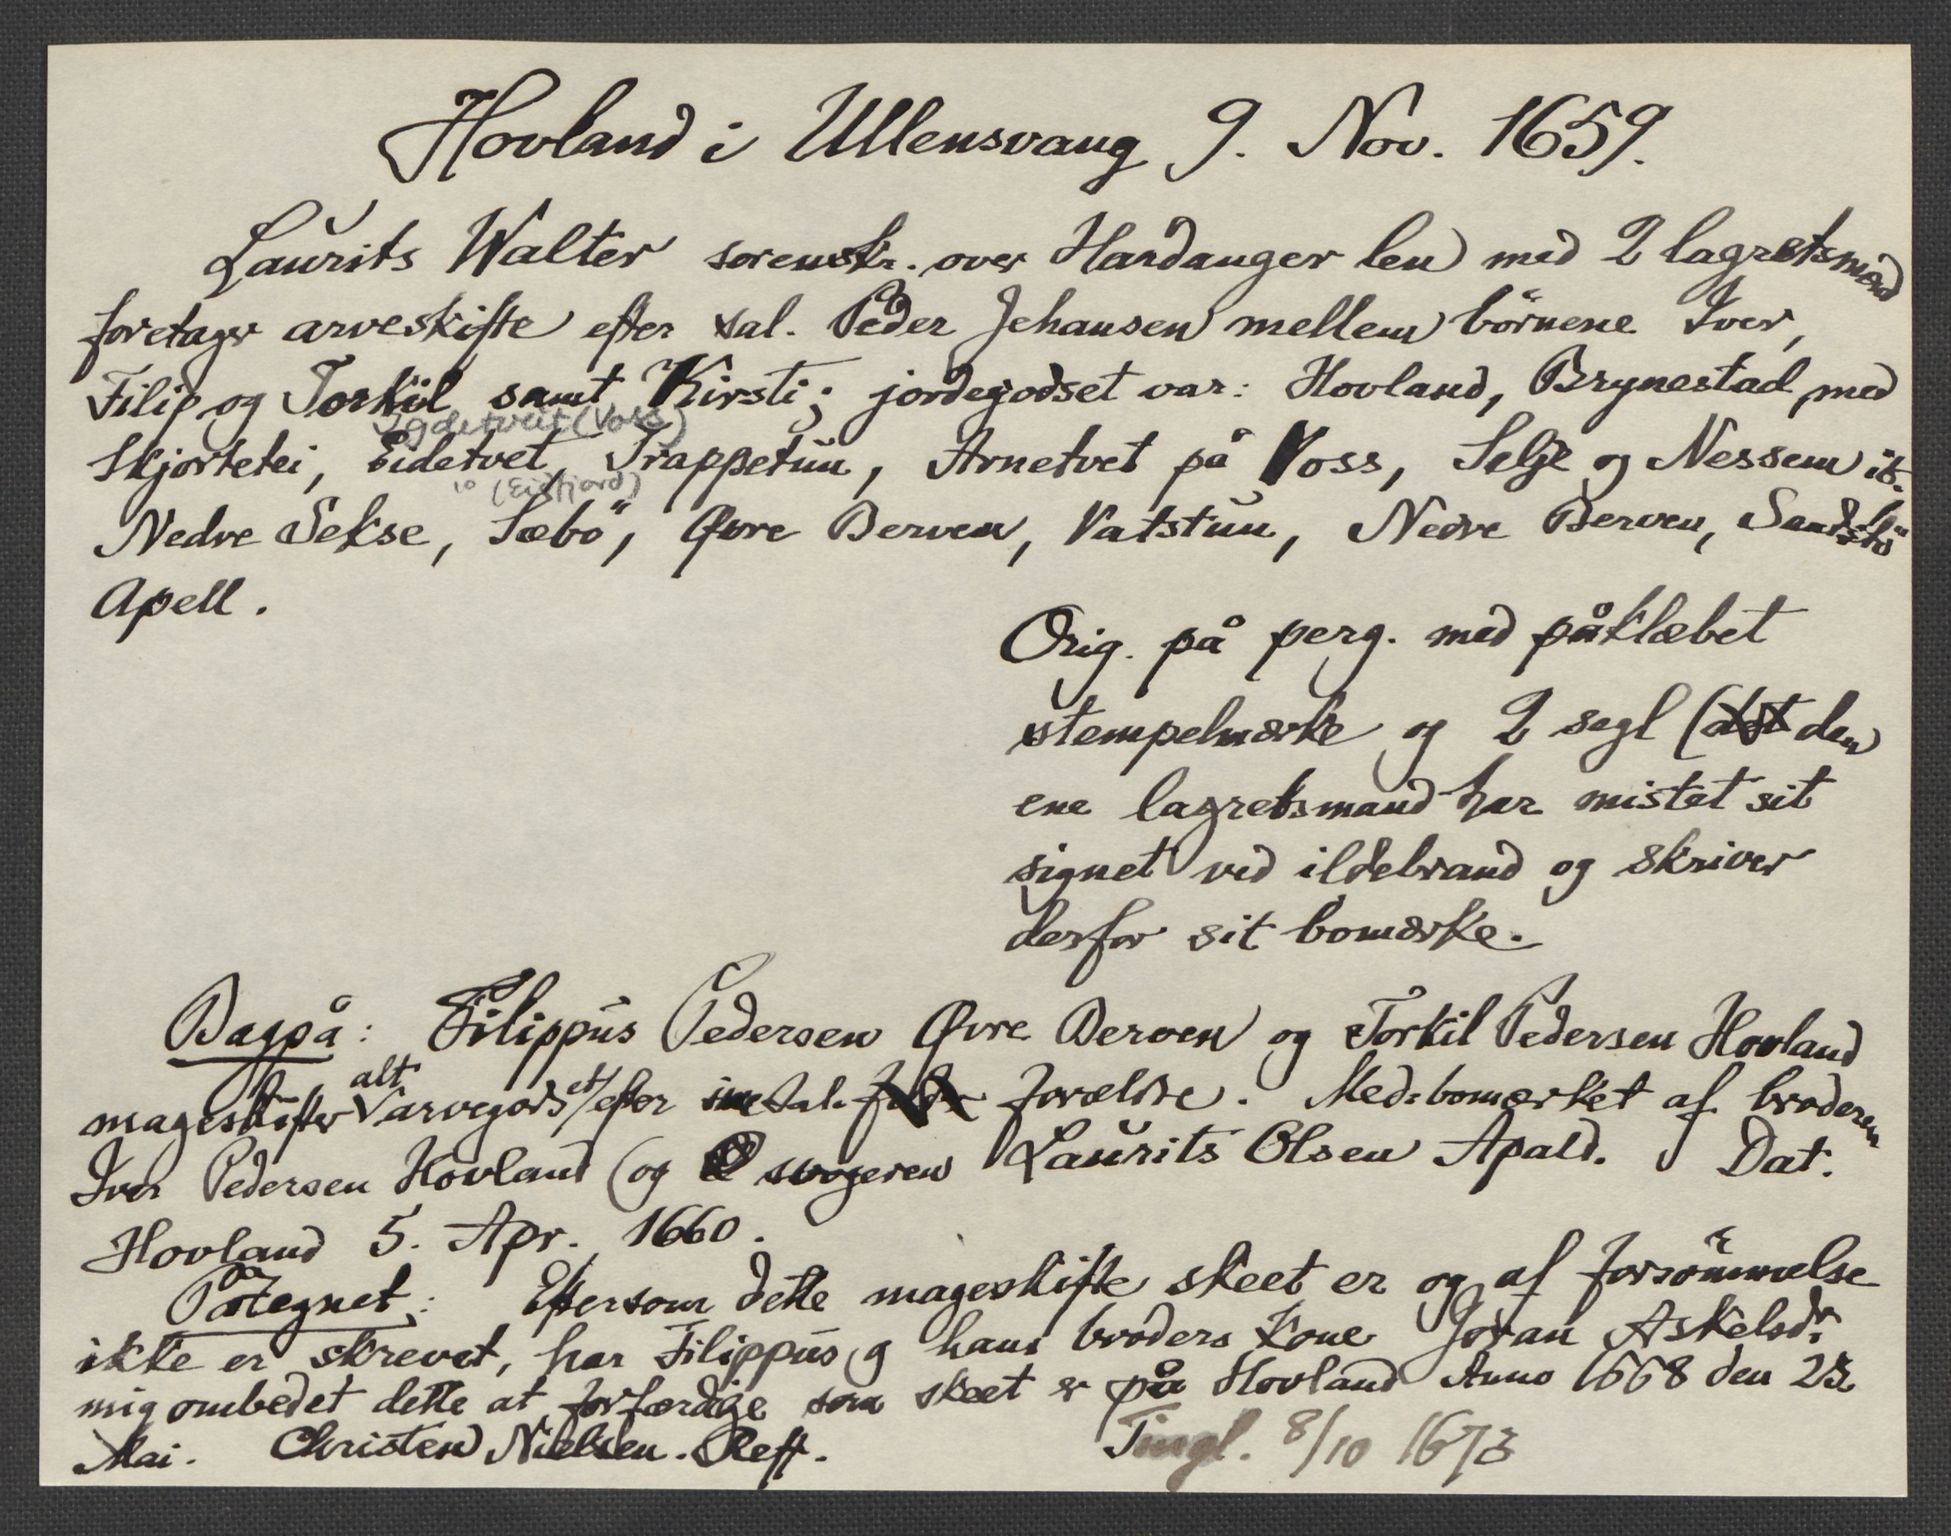 Hovland i Ullensvang 9. Nov. 1659.
Laurits Walter sorenskr. over Hardanger len med 2 lagretsmænd
foretager arveskifte efter sal. Peder Jehansen mellem børnene Iver,
Filip og Torkil samt Kirsti; jordegodset var: Hovland, Brynestad med
Igdetveit (Voss)
Skjortetei, Eidetvet, Trappetun, Arnetvet på Voss, Selje og Nessem ib.
(Eidfjord)
Nedre Sekse, Sæbö, Øvre Berven, Vatstun, Nedre Berven, Sandstø
Apell.
Orig. på perg. med påklæbet
stempelmærke og 2 segl (den
ene lagretsmand har mistet sit
signet ved ildebrand og skriver
derfor sit bomærke.
Bagpå: Filippus Pedersen Øvre Berven og Torkil Pedersen Hovland
mageskifter alt arvegodset efter sal. forældre. Med bomærket af broderen
Iver Pedersen Hovland (og svogeren Laurits Olsen Apald. Dat.
Hovland 5. Apr. 1660.
Påtegnet: Eftersom dette mageskifte skeet er og af forsömmelse
ikke er skrevet, har Filippus og hans broders kone Joran Askelsdr.
mig ombedet dette at forfærdige som skeet er på Hovland Anno 1668 den 23
Mai. Christen Nielsen. Reff.
Tingl. 8/10 1673